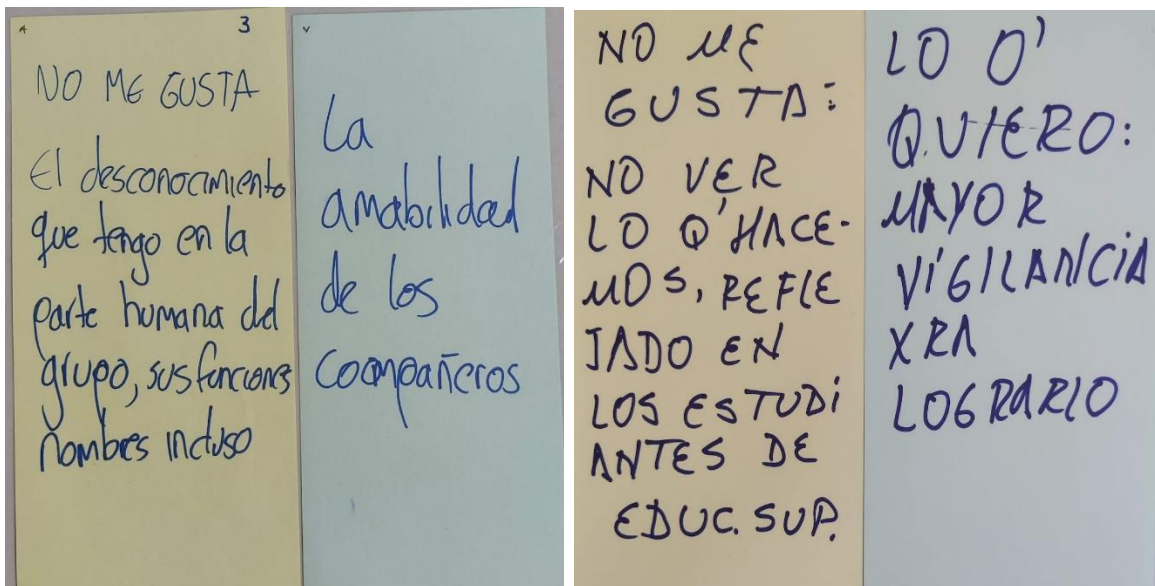 A 3
NO ME GUSTA
El desconocimiento
que tengo en la
parte humana del
grupo, sus funciones
nombres incluso
v
La
amabilidad
de los
compañeros
NO ME
GUSTA:
NO VER
LO Q' HACE-
MOS, REFLE
JADO EN
LOS ESTUDI
ANTES DE
EDUC. SUP.
LO Q'
QUIERO:
MAYOR
VIGILANCIA
XRA
LOGRARLO